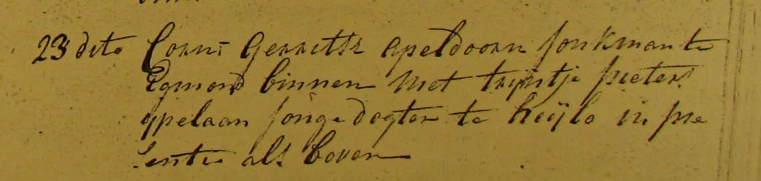 23 dito Corn: Gerritsz apeldoorn Jonkman te
Egmond binnen Met trijntje pieters
ypelaan jonge dogter te heijlo in pre
sentie als boven